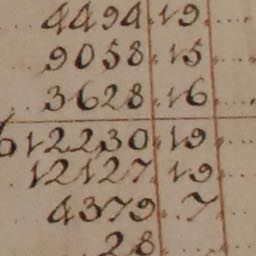 4494.19.....
9058.15....
..3628.16....
612230.19....
12127.19....
..4379..7....
28